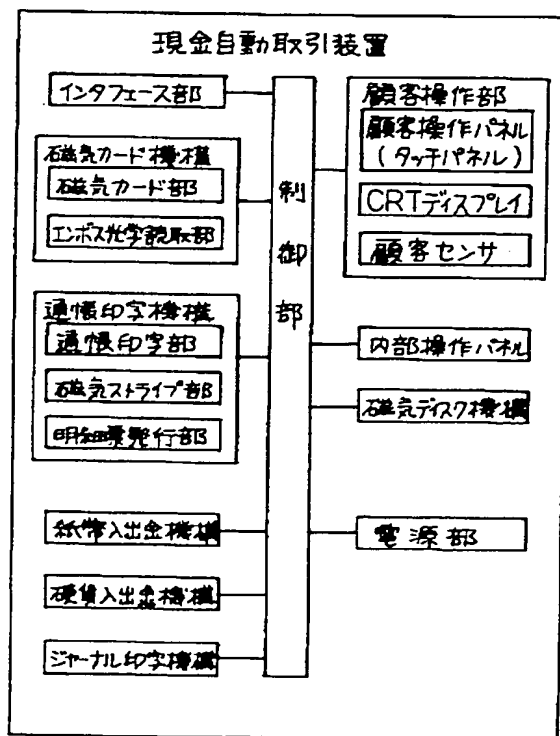 現金自動取引装置
インタフェース部
磁気カード機構
磁気カード部
エンボス光学読取部
通帳印字機構
通帳印字部
磁気ストライプ部
明細票発行部
紙幣入出金機構
硬貨入出金機構
ジャーナル印字機構
制御部
顧客操作部
顧客操作パネル
(タッチパネル)
CRTディスプレイ
顧客センサ
内部操作パネル
磁気ディスク機構
電源部